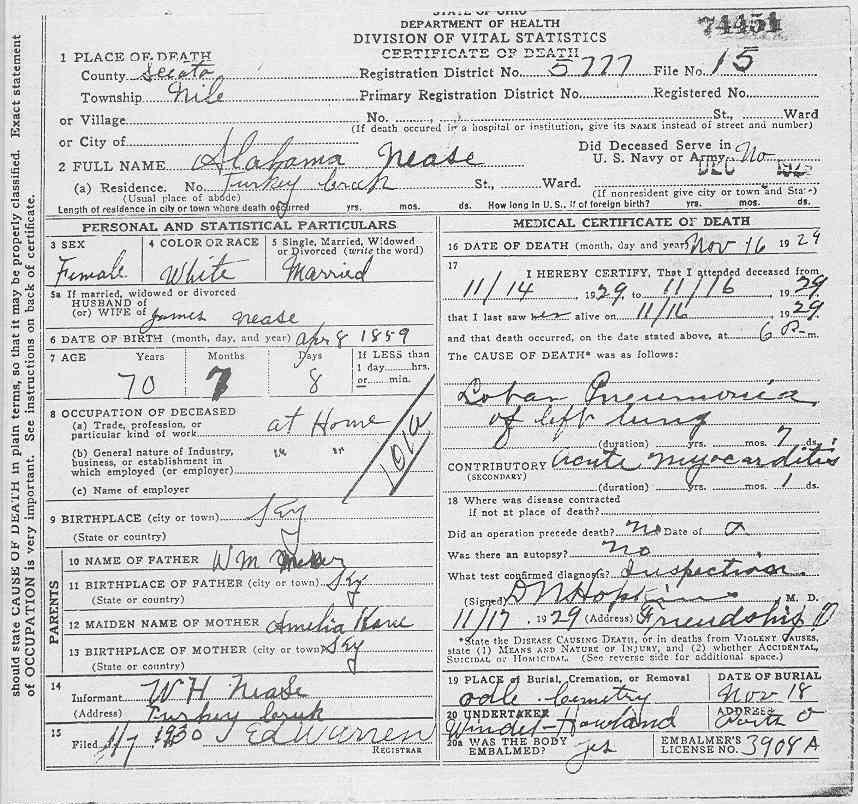 STATE OF OHIO
DEPARTMENT OF HEALTH
DIVISION OF VITAL STATISTICS
CERTIFICATE OF DEATH
74451
1 PLACE OF DEATH
County Scioto Registration District No. 5777 File No. 15
Township Nile Primary Registration District No. Registered No.
or Village No. St., Ward
(If death occured in a hospital or institution, give its NAME instead of street and number)
or City of
2 FULL NAME Alabama Nease Did Deceased Serve in U. S. Navy or Army No
DEC 1929
(a) Residence. No. Turkey Creek St., Ward.
(Usual place of abode) (If nonresident give city or town and State)
Length of residence in city or town where death occurred yrs. mos. ds. How long in U.S., if of foreign birth? yrs. mos. ds.
PERSONAL AND STATISTICAL PARTICULARS
3 SEX Female
4 COLOR OR RACE White
5 Single, Married, Widowed or Divorced (write the word) Married
5a If married, widowed or divorced
HUSBAND of
(or) WIFE of James Nease
6 DATE OF BIRTH (month, day, and year) Apr 8 1859
7 AGE Years Months Days If LESS than
1 day hrs.
or min.
70 7 8
8 OCCUPATION OF DECEASED
(a) Trade, profession, or particular kind of work at Home
(b) General nature of Industry, business, or establishment in which employed (or employer) " "
(c) Name of employer
101a
9 BIRTHPLACE (city or town) Ky
(State or country)
PARENTS
10 NAME OF FATHER Wm
11 BIRTHPLACE OF FATHER (city or town) Ky
(State or country)
12 MAIDEN NAME OF MOTHER Amelia
13 BIRTHPLACE OF MOTHER (city or town) Ky
(State or country)
14
Informant W H Nease
(Address) Turkey Creek
15
Filed 1/7 1930 Ed Warren
REGISTRAR
MEDICAL CERTIFICATE OF DEATH
16 DATE OF DEATH (month, day and year) Nov 16 1929
17
I HEREBY CERTIFY, That I attended deceased from
11/14 , 1929, to 11/16 , 1929
that I last saw her alive on 11/16 , 1929.
and that death occurred, on the date stated above, at 6 P. m.
The CAUSE OF DEATH* was as follows:
Lobar Pneumonia
of left lung
(duration) yrs. mos. 7 ds.
CONTRIBUTORY Acute Myocarditis
(SECONDARY)
(duration) yrs. mos. 1 ds.
18 Where was disease contracted
if not at place of death?
Did an operation precede death? No Date of
Was there an autopsy? No
What test confirmed diagnosis? Inspection
(Signed) D N Hopkins M. D.
11/17 , 1929 (Address) Friendship O
*State the DISEASE CAUSING DEATH, or in deaths from VIOLENT CAUSES,
state (1) MEANS AND NATURE OF INJURY, and (2) whether ACCIDENTAL,
SUICIDAL OR HOMICIDAL. (See reverse side for additional space.)
19 PLACE of Burial, Cremation, or Removal DATE OF BURIAL
Odle Cemetry Nov 18
20 UNDERTAKER ADDRESS
Windel-Howland Ports O
20a WAS THE BODY EMBALMED? yes
EMBALMER'S LICENSE NO. 3908A
should state CAUSE OF DEATH in plain terms, so that it may be properly classified. Exact statement
of OCCUPATION is very important. See instructions on back of certificate.